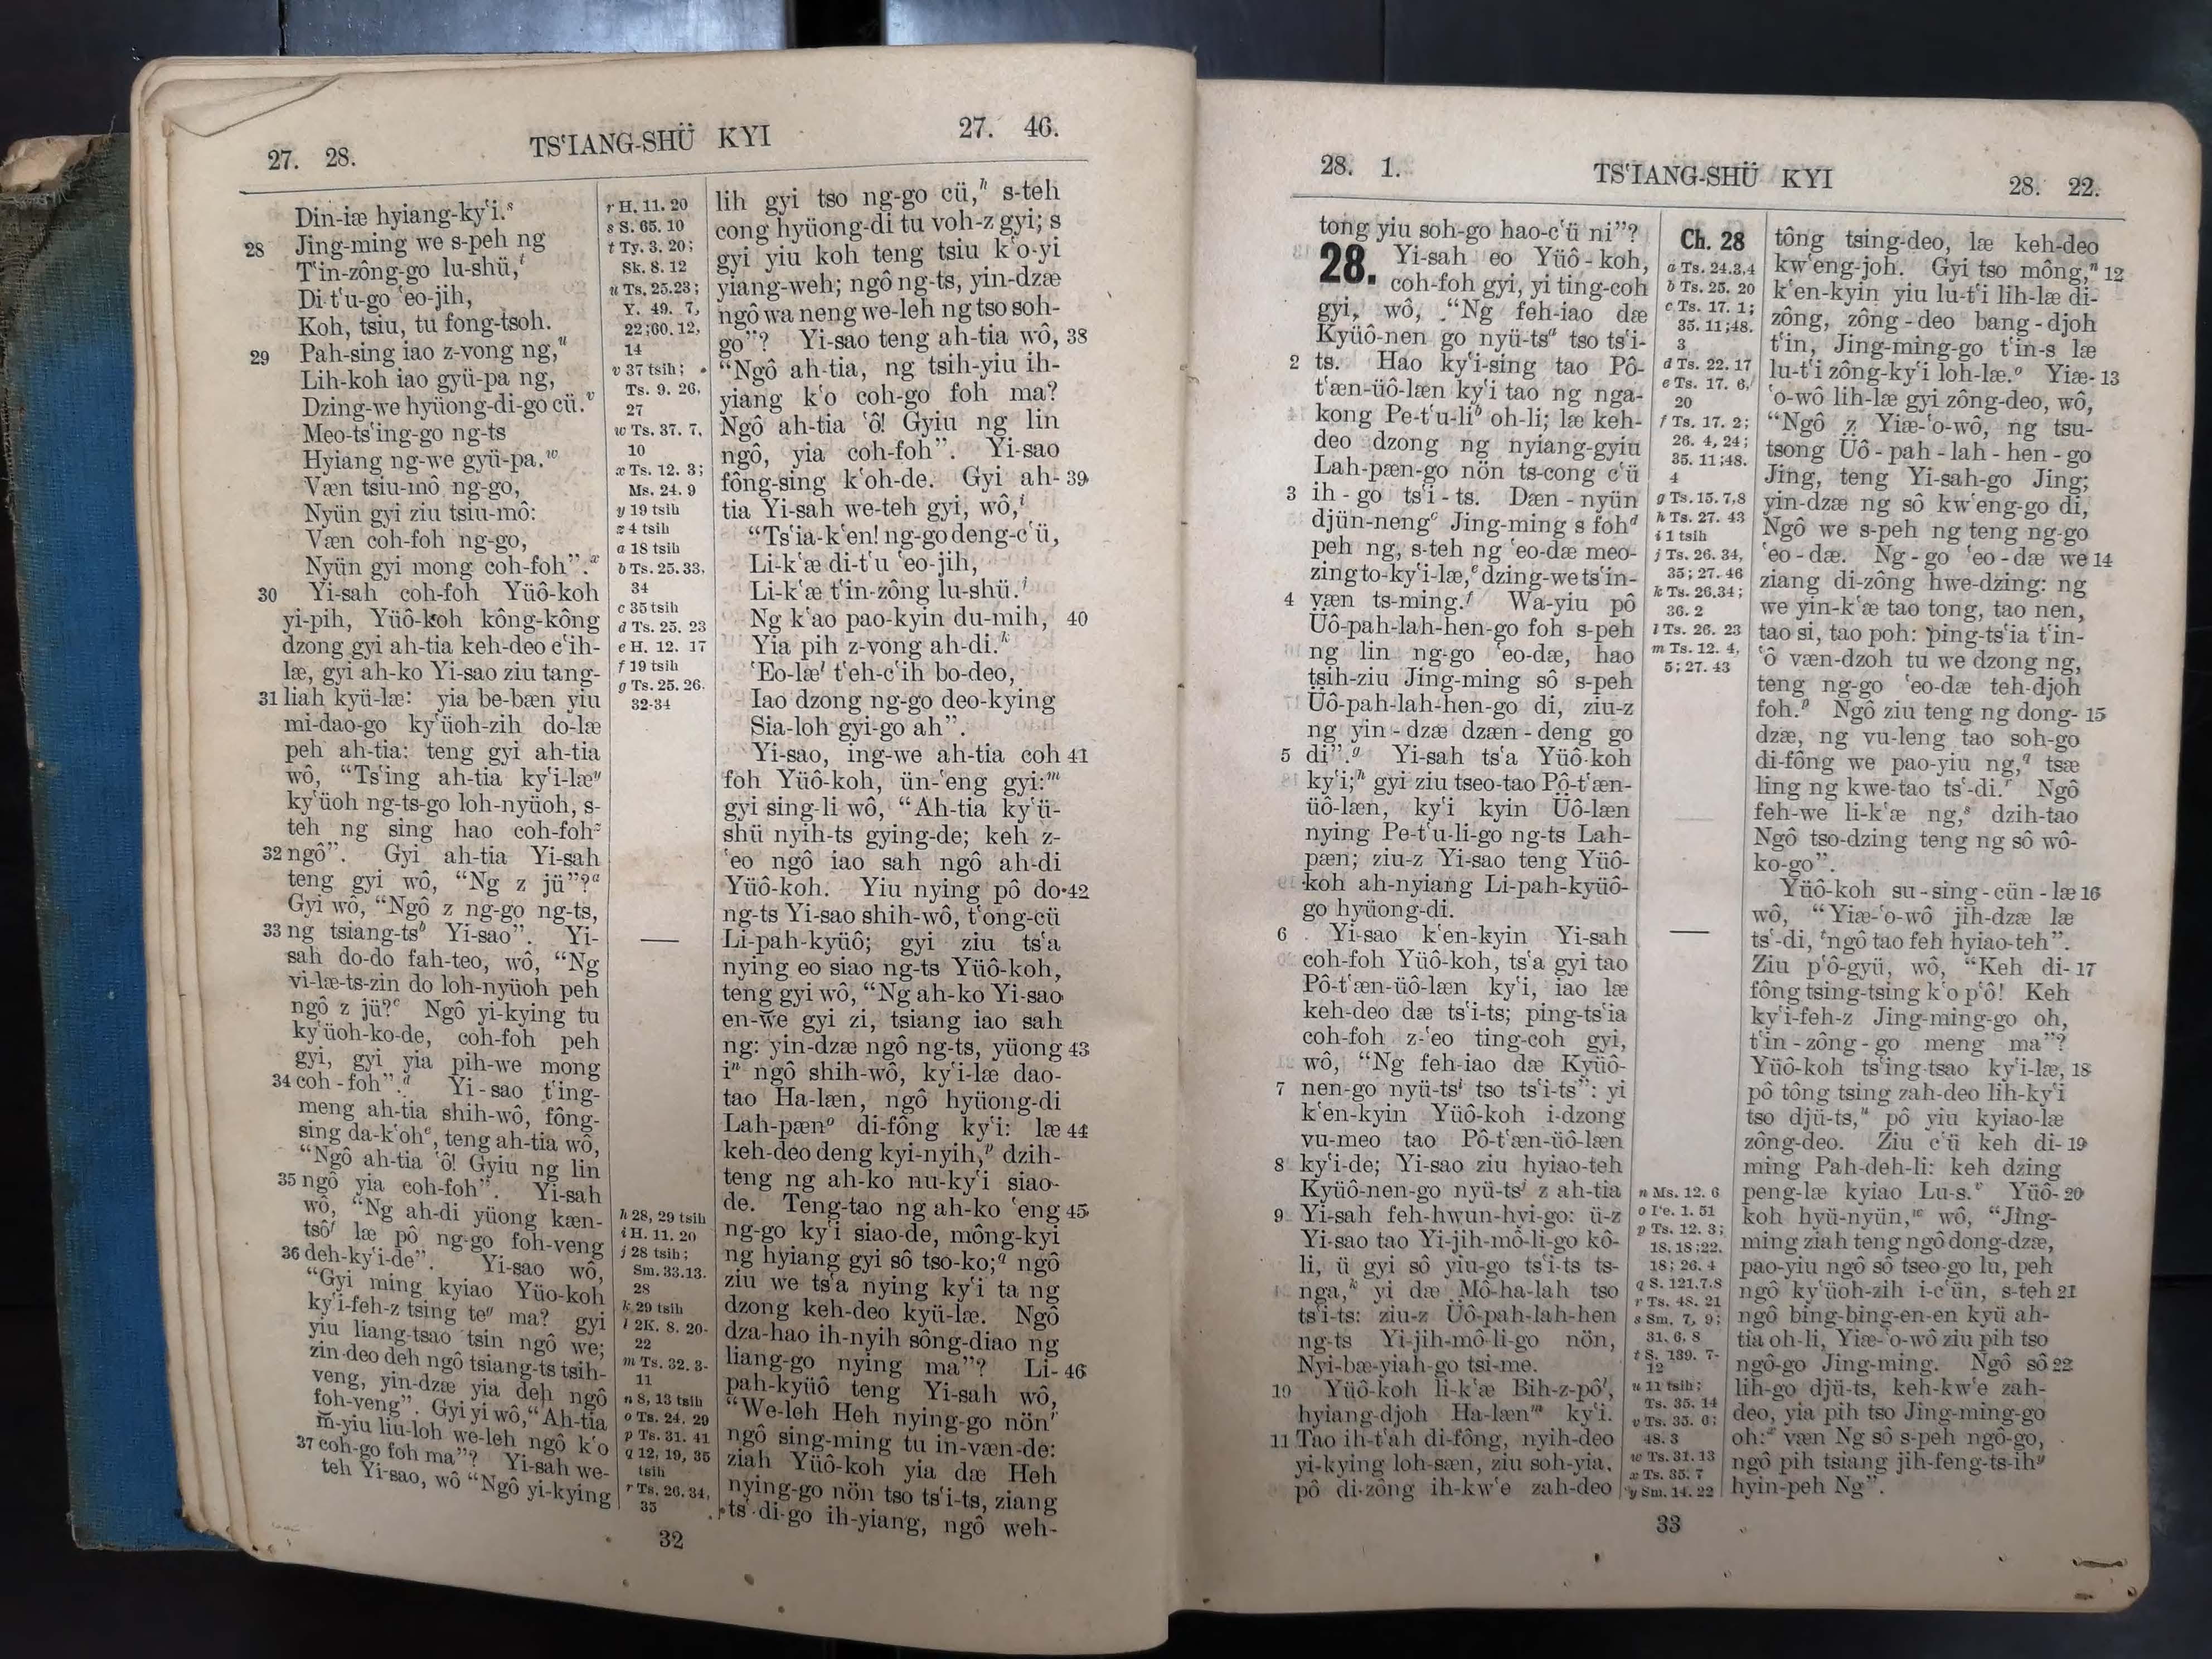 27. 28.
TSʻIANG-SHÜ KYI
27. 46.
Din-iæ hyiang-kyʻi.ˢ
28 Jing-ming we s-peh ng
Tʻin-zông-go lu-shü,ᵗ
Di tʻu-go ʻeo-jih,
Koh, tsiu, tu fong-tsoh.
29 Pah-sing iao z-vong ng,ᵘ
Lih-koh iao gyü-pa ng,
Dzing-we hyüong-di-go cü.ᵛ
Meo-tsʻing-go ng-ts
Hyiang ng-we gyü-pa.ʷ
Væn tsiu-mô ng-go,
Nyün gyi ziu tsiu-mô:
Væn coh-foh ng-go,
Nyün gyi mong coh-foh”.ˣ
30 Yi-sah coh-foh Yüô-koh
yi-pih, Yüô-koh kông-kông
dzong gyi ah-tia keh-deo cʻih-
læ, gyi ah-ko Yi-sao ziu tang-
31 liah kyü-læ: yia be-bæn yiu
mi-dao-go kyʻüoh-zih do-læ
peh ah-tia: teng gyi ah-tia
wô, “Tsʻing ah-tia kyʻi-læʸ
kyʻüoh ng-ts-go loh-nyüoh, s-
teh ng sing hao coh-fohᶻ
32 ngô”. Gyi ah-tia Yi-sah
teng gyi wô, “Ng z jü”?ᵃ
Gyi wô, “Ngô z ng-go ng-ts,
33 ng tsiang-tsᵇ Yi-sao”. Yi-
sah do-do fah-teo, wô, “Ng
vi-læ-ts-zin do loh-nyüoh peh
ngô z jü?ᶜ Ngô yi-kying tu
kyʻüoh-ko-de, coh-foh peh
gyi, gyi yia pih-we mong
34 coh-foh”.ᵈ Yi-sao tʻing-
meng ah-tia shih-wô, fông-
sing da-kʻohᵉ, teng ah-tia wô,
“Ngô ah-tia ʻô! Gyiu ng lin
35 ngô yia coh-foh”. Yi-sah
wô, “Ng ah-di yüong kæn-
tsôᶠ læ pô ng-go foh-veng
36 deh-kyʻi-de”. Yi-sao wô,
“Gyi ming kyiao Yüo-koh
kyʻi-feh-z tsing teᵍ ma? gyi
yiu liang-tsao tsin ngô we;
zin-deo deh ngô tsiang-ts tsih-
veng, yin-dzæ yia deh ngô
foh-veng”. Gyi yi wô, “Ah-tia
m̆-yiu liu-loh we-leh ngô kʻo
37 coh-go foh ma”? Yi-sah we-
teh Yi-sao, wô “Ngô yi-kying
r H. 11. 20
s S. 65. 10
t Ty. 3. 20;
Sk. 8. 12
u Ts. 25.23;
Y. 49. 7,
22;60. 12,
14
v 37 tsih;
Ts. 9. 26,
27
w Ts. 37. 7,
10
x Ts. 12. 3;
Ms. 24. 9
y 19 tsih
z 4 tsih
a 18 tsih
b Ts. 25.33,
34
c 35 tsih
d Ts. 25. 23
e H. 12. 17
f 19 tsih
g Ts. 25. 26.
32-34
h 28, 29 tsih
i H. 11. 20
j 28 tsih;
Sm. 33.13.
28
k 29 tsih
l 2K. 8. 20-
22
m Ts. 32. 3-
11
n 8, 13 tsih
o Ts. 24. 29
p Ts. 31. 41
q 12, 19, 35
tsih
r Ts. 26. 34,
35
lih gyi tso ng-go cü,ʰ s-teh
cong hyüong-di tu voh-z gyi; s
gyi yiu koh teng tsiu kʻo-yi
yiang-weh; ngô ng-ts, yin-dzæ
ngô wa neng we-leh ng tso soh-
go”? Yi-sao teng ah-tia wô, 38
“Ngô ah-tia, ng tsih-yiu ih-
yiang kʻo coh-go foh ma?
Ngô ah-tia ʻô! Gyiu ng lin
ngô, yia coh-foh”. Yi-sao
fông-sing kʻoh-de. Gyi ah- 39
tia Yi-sah we-teh gyi, wô,ⁱ
“Tsʻia-kʻen! ng-go deng-cʻü,
Li-kʻæ di-tʻu ʻeo-jih,
Li-kʻæ tʻin-zông lu-shü.ʲ
Ng kʻao pao-kyin du-mih, 40
Yia pih z-vong ah-di.ᵏ
ʻEo-læˡ tʻeh-cʻih bo-deo,
Iao dzong ng-go deo-kying
Sia-loh gyi-go ah”.
Yi-sao, ing-we ah-tia coh 41
foh Yüô-koh, ün-ʻeng gyi:ᵐ
gyi sing-li wô, “Ah-tia kyʻü-
shü nyih-ts gying-de; keh z-
ʻeo ngô iao sah ngô ah-di
Yüô-koh. Yiu nying pô do- 42
ng-ts Yi-sao shih-wô, tʻong-cü
Li-pah-kyüô; gyi ziu tsʻa
nying eo siao ng-ts Yüô-koh,
teng gyi wô, “Ng ah-ko Yi-sao
en-w̆e gyi zi, tsiang iao sah
ng: yin-dzæ ngô ng-ts, yüong 43
iⁿ ngô shih-wô, kyʻi-læ dao-
tao Ha-læn, ngô hyüong-di
Lah-pænᵒ di-fông kyʻi: læ 44
keh-deo deng kyi-nyih,ᵖ dzih-
teng ng ah-ko nu-kyʻi siao-
de. Teng-tao ng ah-ko ʻeng 45
ng-go kyʻi siao-de, mông-kyi
ng hyiang gyi sô tso-ko;q ngô
ziu we tsʻa nying kyʻi ta ng
dzong keh-deo kyü-læ. Ngô
dza-hao ih-nyih sông-diao ng
liang-go nying ma”? Li- 46
pah-kyüô teng Yi-sah wô,
“We-leh Heh nying-go nönʳ
ngô sing-ming tu in-væn-de:
ziah Yüô-koh yia dæ Heh
nying-go nön tso tsʻi-ts, ziang
tsʻ-di-go ih-yiang, ngô weh-
32
28. 1.
TSʻIANG-SHÜ KYI
28. 22.
tong yiu soh-go hao-cʻü ni”?
28. Yi-sah eo Yüô-koh,
coh-foh gyi, yi ting-coh
gyi, wô, “Ng feh-iao dæ
Kyüô-nen go nyü-tsᵃ tso tsʻi-
2 ts. Hao kyʻi-sing tao Pô-
tʻæn-üô-læn kyʻi tao ng nga-
kong Pe-tʻu-liᵇ oh-li; læ keh-
deo dzong ng nyiang-gyiu
Lah-pæn-go nön ts-cong cʻü
3 ih-go tsʻi-ts. Dæn-nyün
djün-nengᶜ Jing-ming s fohᵈ
peh ng, s-teh ng ʻeo-dæ meo-
zing to-kyʻi-læ,ᵉ dzing-we tsʻin-
4 væn ts-ming.ᶠ Wa-yiu pô
Üô-pah-lah-hen-go foh s-peh
ng lin ng-go ʻeo-dæ, hao
tsih-ziu Jing-ming sô s-peh
Üô-pah-lah-hen-go di, ziu-z
ng yin-dzæ dzæn-deng go
5 di”.ᵍ Yi-sah tsʻa Yüô-koh
kyʻi;ʰ gyi ziu tseo-tao Pô-tʻæn-
üô-læn, kyʻi kyin Üô-læn
nying Pe-tʻu-li-go ng-ts Lah-
pæn; ziu-z Yi-sao teng Yüô-
koh ah-nyiang Li-pah-kyüô-
go hyüong-di.
6 Yi-sao kʻen-kyin Yi-sah
coh-foh Yüô-koh, tsʻa gyi tao
Pô-tʻæn-üô-læn kyʻi, iao læ
keh-deo dæ tsʻi-ts; ping-tsʻia
coh-foh z-ʻeo ting-coh gyi,
wô, “Ng feh-iao dæ Kyüô-
7 nen-go nyü-tsⁱ tso tsʻi-ts”: yi
kʻen-kyin Yüô-koh i-dzong
vu-meo tao Pô-tʻæn-üô-læn
8 kyʻi-de; Yi-sao ziu hyiao-teh
Kyüô-nen-go nyü-tsʲ z ah-tia
9 Yi-sah feh-hwun-hyi-go: ü-z
Yi-sao tao Yi-jih-mô-li-go kô-
li, ü gyi sô yiu-go tsʻi-ts ts-
nga,ᵏ yi dæ Mô-ha-lah tso
tsʻi-ts: ziu-z Üô-pah-lah-hen
ng-ts Yi-jih-mô-li-go nön,
Nyi-bæ-yiah-go tsi-me.
10 Yüô-koh li-kʻæ Bih-z-pôˡ,
hyiang-djoh Ha-lænᵐ kyʻi.
11 Tao ih-tʻah di-fông, nyih-deo
yi-kying loh-sæn, ziu soh-yia.
pô di-zông ih-kwʻe zah-deo
Ch. 28
a Ts. 24.3,4
b Ts. 25. 20
c Ts. 17. 1;
35. 11;48.
3
d Ts. 22. 17
e Ts. 17. 6,
20
f Ts. 17. 2;
26. 4, 24;
35. 11;48.
4
g Ts. 15. 7,8
h Ts. 27. 43
i 1 tsih
j Ts. 26. 34,
35; 27. 46
k Ts. 26.34;
36. 2
l Ts. 26. 23
m Ts. 12. 4,
5; 27. 43
n Ms. 12. 6
o Iʻe. 1. 51
p Ts. 12. 3;
18. 18;22.
18; 26. 4
q S. 121.7.8
r Ts. 48. 21
s Sm. 7. 9;
31. 6. 8
t S. 139. 7-
12
u 11 tsih;
Ts. 35. 14
v Ts. 35. 6;
48. 3
w Ts. 31. 13
x Ts. 35. 7
y Sm. 14. 22
tông tsing-deo, læ keh-deo
kwʻeng-joh. Gyi tso mông,ⁿ 12
kʻen-kyin yiu lu-tʻi lih-læ di-
zông, zông-deo bang-djoh
tʻin, Jing-ming-go tʻin-s læ
lu-tʻi zông-kyʻi loh-læ.ᵒ Yiæ- 13
ʻo-wô lih-læ gyi zông-deo, wô,
“Ngô z Yiæ-ʻo-wô, ng tsu-
tsong Üô-pah-lah-hen-go
Jing, teng Yi-sah-go Jing;
yin-dzæ ng sô kwʻeng-go di,
Ngô we s-peh ng teng ng-go
ʻeo-dæ. Ng-go ʻeo-dæ we 14
ziang di-zông hwe-dzing: ng
we yin-kʻæ tao tong, tao nen,
tao si, tao poh: ping-tsʻia tʻin-
ʻô væn-dzoh tu we dzong ng,
teng ng-go ʻeo-dæ teh-djoh
foh.ᵖ Ngô ziu teng ng dong- 15
dzæ, ng vu-leng tao soh-go
di-fông we pao-yiu ng,q tsæ
ling ng kwe-tao tsʻ-di.ʳ Ngô
feh-we li-kʻæ ng,ˢ dzih-tao
Ngô tso-dzing teng ng sô wô-
ko-go”.
Yüô-koh su-sing-cün-læ 16
wô, “Yiæ-ʻo-wô jih-dzæ læ
tsʻ-di, ᵗngô tao feh hyiao-teh”.
Ziu pʻô-gyü, wô, “Keh di- 17
fông tsing-tsing kʻo pʻô! Keh
kyʻi-feh-z Jing-ming-go oh,
tʻin-zông-go meng ma”?
Yüô-koh tsʻing-tsao kyʻi-læ, 18
pô tông tsing zah-deo lih-kyʻi
tso djü-ts,ᵘ pô yiu kyiao-læ
zông-deo. Ziu cʻü keh di- 19
ming Pah-deh-li: keh dzing
peng-læ kyiao Lu-s.ᵛ Yüô- 20
koh hyü-nyün,ʷ wô, “Jing-
ming ziah teng ngô dong-dzæ,
pao-yiu ngô sô tseo-go lu, peh
ngô kyʻüoh-zih i-cʻün, s-teh 21
ngô bing-bing-en-en kyü ah-
tia oh-li, Yiæ-ʻo-wô ziu pih tso
ngô-go Jing-ming. Ngô sô 22
lih-go djü-ts, keh-kwʻe zah-
deo, yia pih tso Jing-ming-go
oh:ˣ væn Ng sô s-peh ngô-go,
ngô pih tsiang jih-feng-ts-ihʸ
hyin-peh Ng”.
33